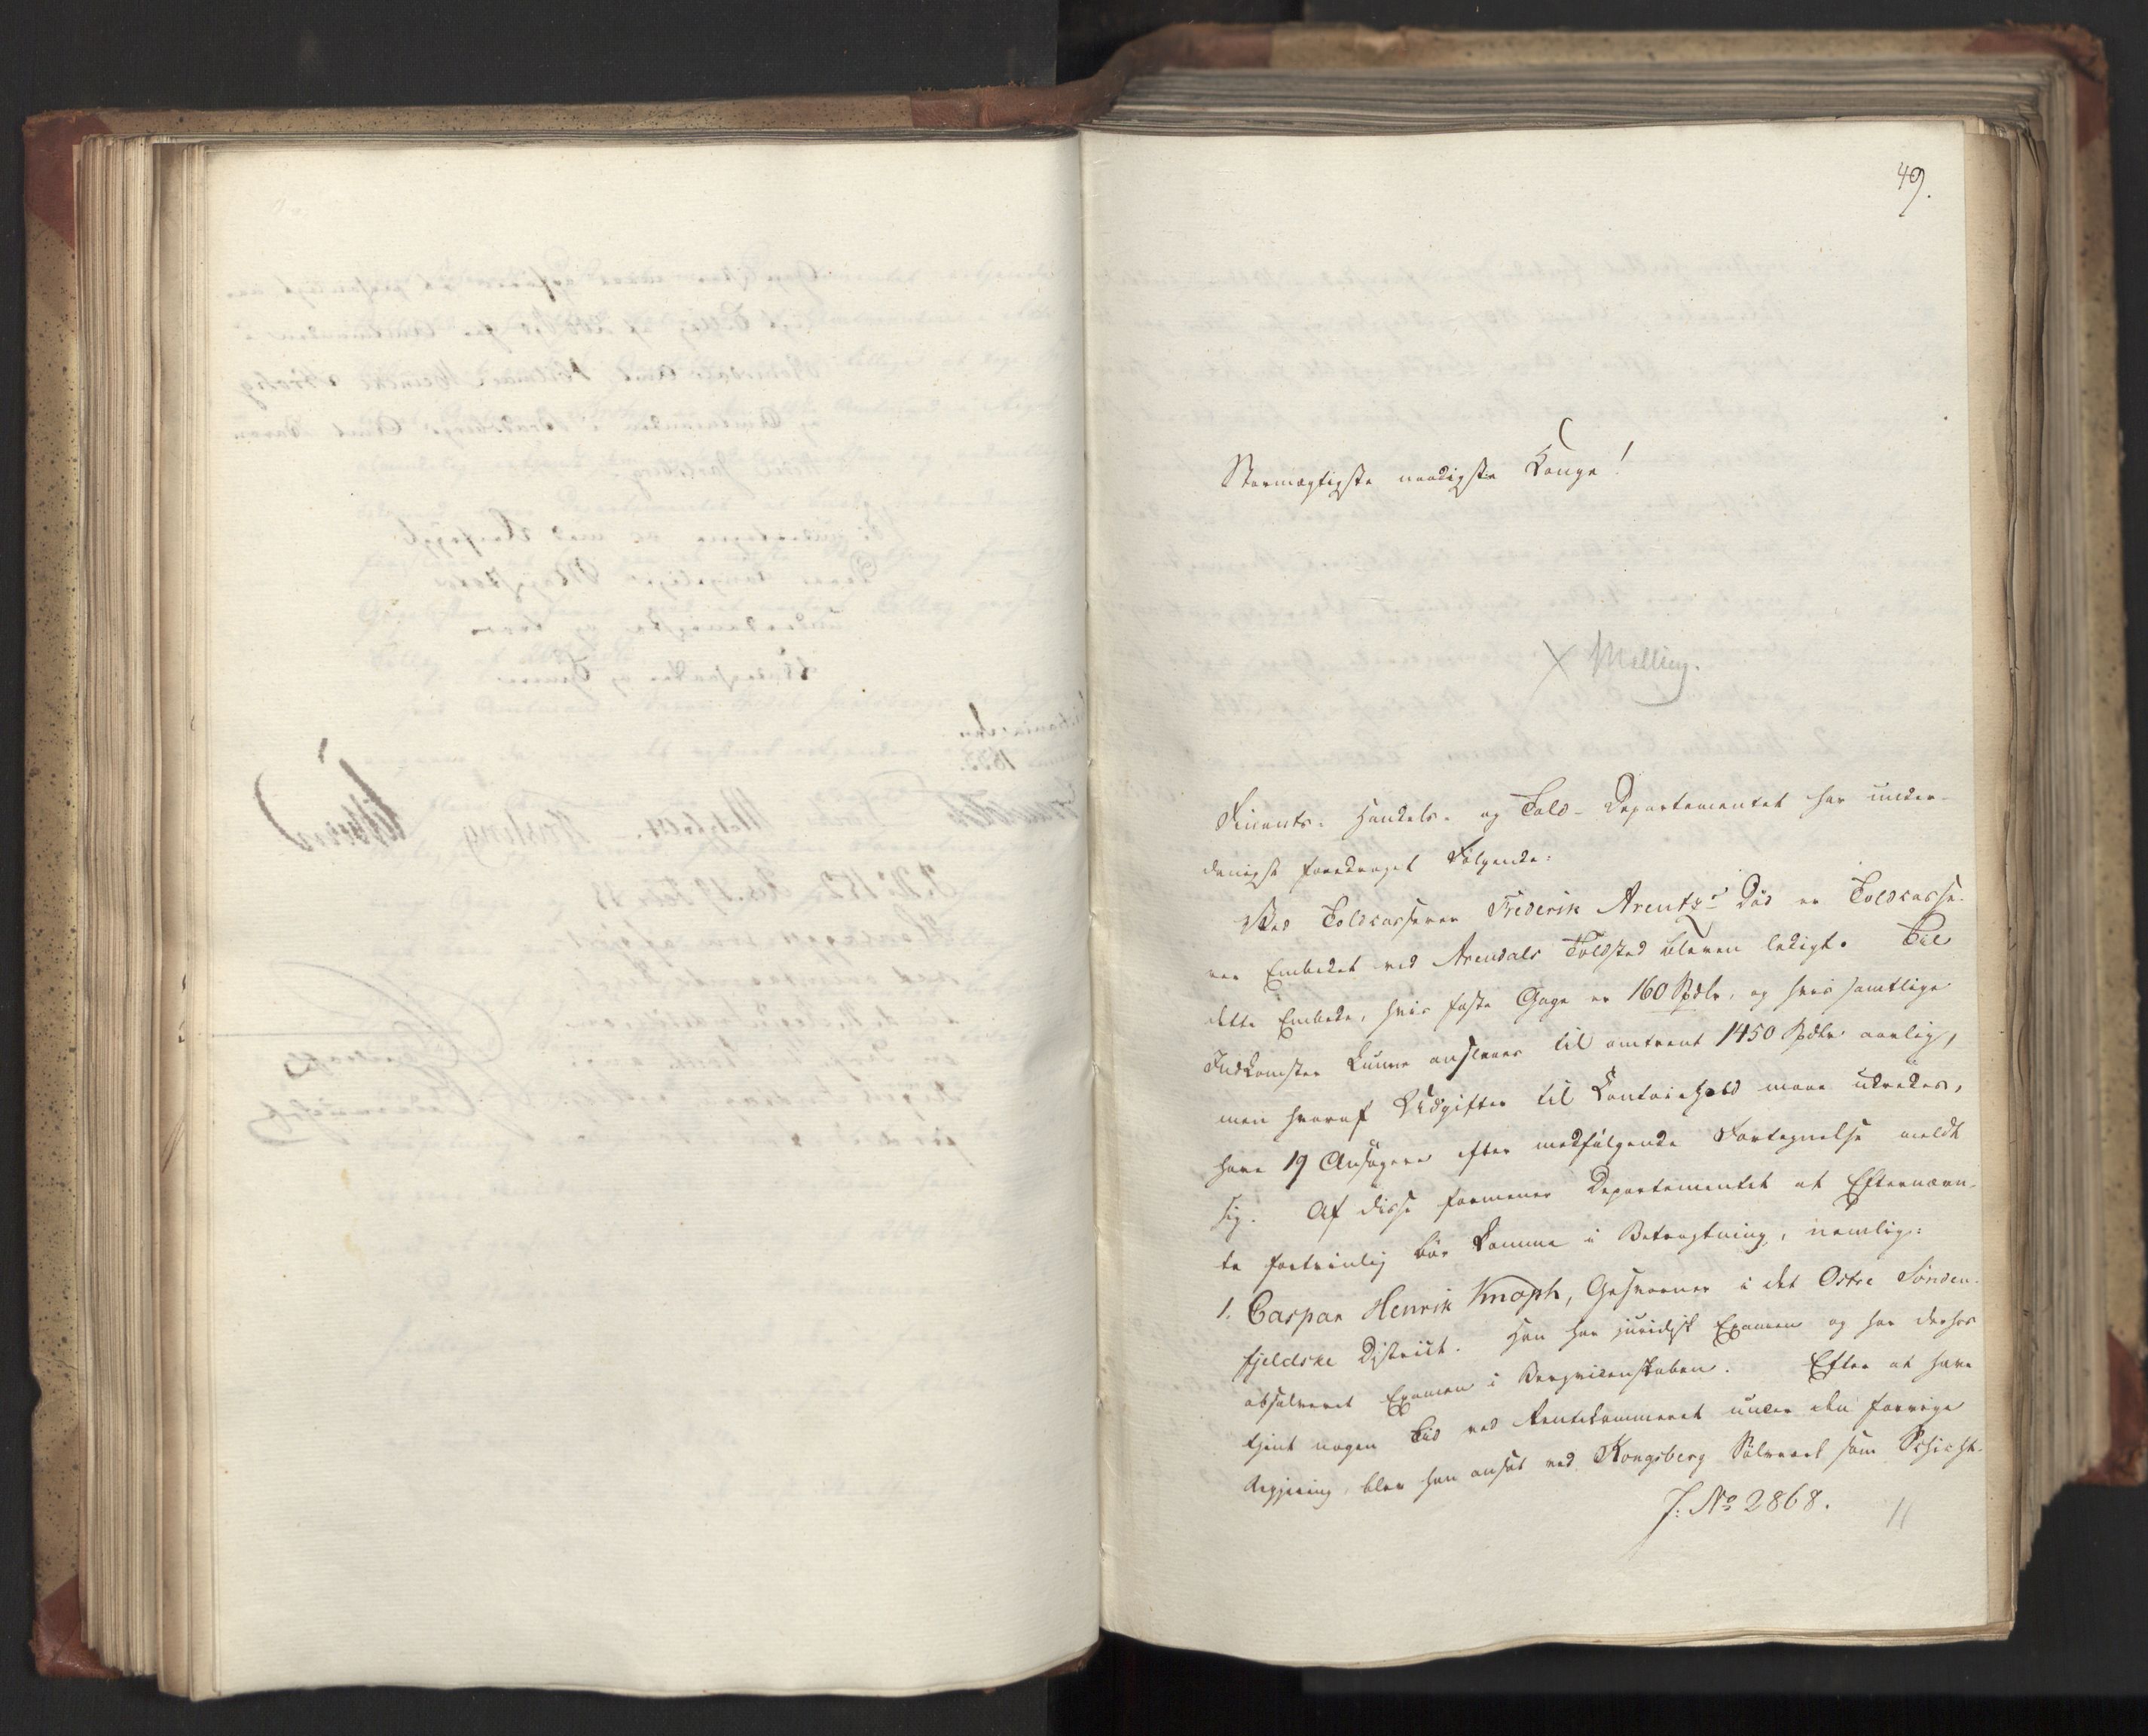 49.
Stormægtigste naadigste Konge!
x Melling.
Finants- Handels- og Told-Departementet har under-
danigst foredraget Følgende:
Ved Toldcasserer Frederik Arentz's Død er Toldcasse-
rer Embedet ved Arendals Toldsted bleven ledigt. Til
dette Embede, hvis faste Gage er 160 Spdlr, og hvis samtlige
Indkomster kunne anslaaes til omtrent 1450 Spdlr aarlig,
men hvoraf Udgifter til Contoirhold maae udredes,
have 19 Ansøgere efter medfølgende Fortegnelse meldt
sig. Af disse formener Departementet at Efternævn-
te fortrinlig bør komme i Betragtning, nemlig:
1. Caspar Henrik Knoph, Geschworner i det Østre Sønden-
fjeldske District. Han har juridisk Examen og har derhos
absolveret Examen i Bergvidenskaben. Efter at have
tjent nogen Tid ved Rentekammeret under den forrige
Regjering, blev han ansat ved Kongsberg Sølvværk som Schicht-
J: No 2868.